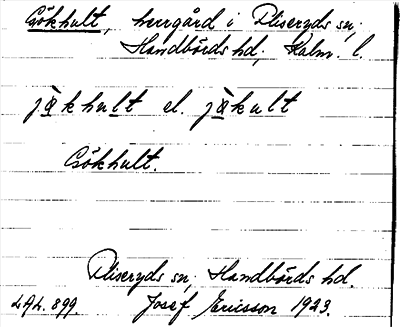 Gökhult, herrgård i Pliseryds sn,
Handbörds hd, Kalm. l.
jȁkhult el. jȁkult
Gökhult.
Pliseryds sn, Handbörds hd.
LAL. 899. Josef Ericsson 1923.